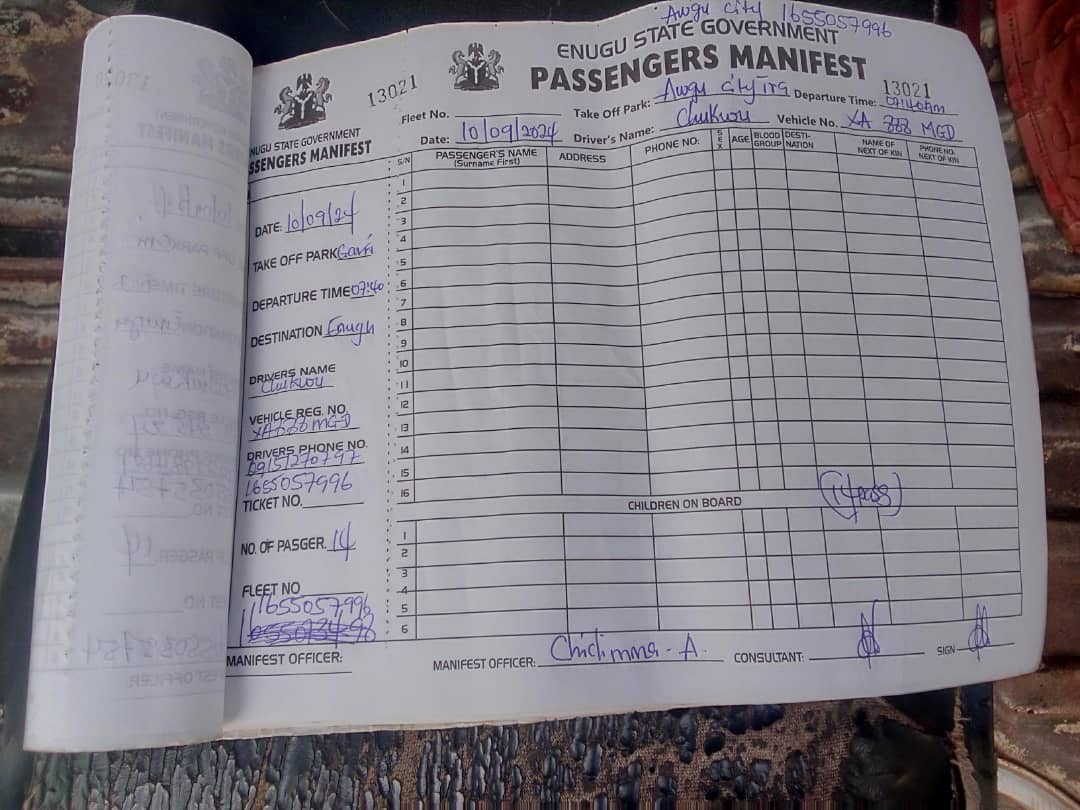 Awgu City 1655057996
ENUGU STATE GOVERNMENT
PASSENGERS MANIFEST
13021
Fleet No.
Take Off Park: Awgu City
Departure Time:
Date: 10/09/2024
Driver's Name: Chukwu
Vehicle No. XA 888 MGD
S/N PASSENGER'S NAME (Surname First) ADDRESS PHONE NO: SEX AGE BLOOD GROUP DESTI-NATION NAME OF NEXT OF KIN PHONE NO. NEXT OF KIN
1
2
3
4
5
6
7
8
9
10
11
12
13
14
15
16
(14 pass)
CHILDREN ON BOARD
1
2
3
4
5
6
MANIFEST OFFICER: Chidimma - A.
CONSULTANT:
SIGN
13021
NUGU STATE GOVERNMENT
SSENGERS MANIFEST
DATE: 10/09/24
TAKE OFF PARK
DEPARTURE TIME 07:40
DESTINATION Enugu
DRIVERS NAME
Chukwu
VEHICLE REG. NO.
XA 888 MGD
DRIVERS PHONE NO.
1655057996
TICKET NO.
NO. OF PASGER. 14
FLEET NO
1655057996
MANIFEST OFFICER: